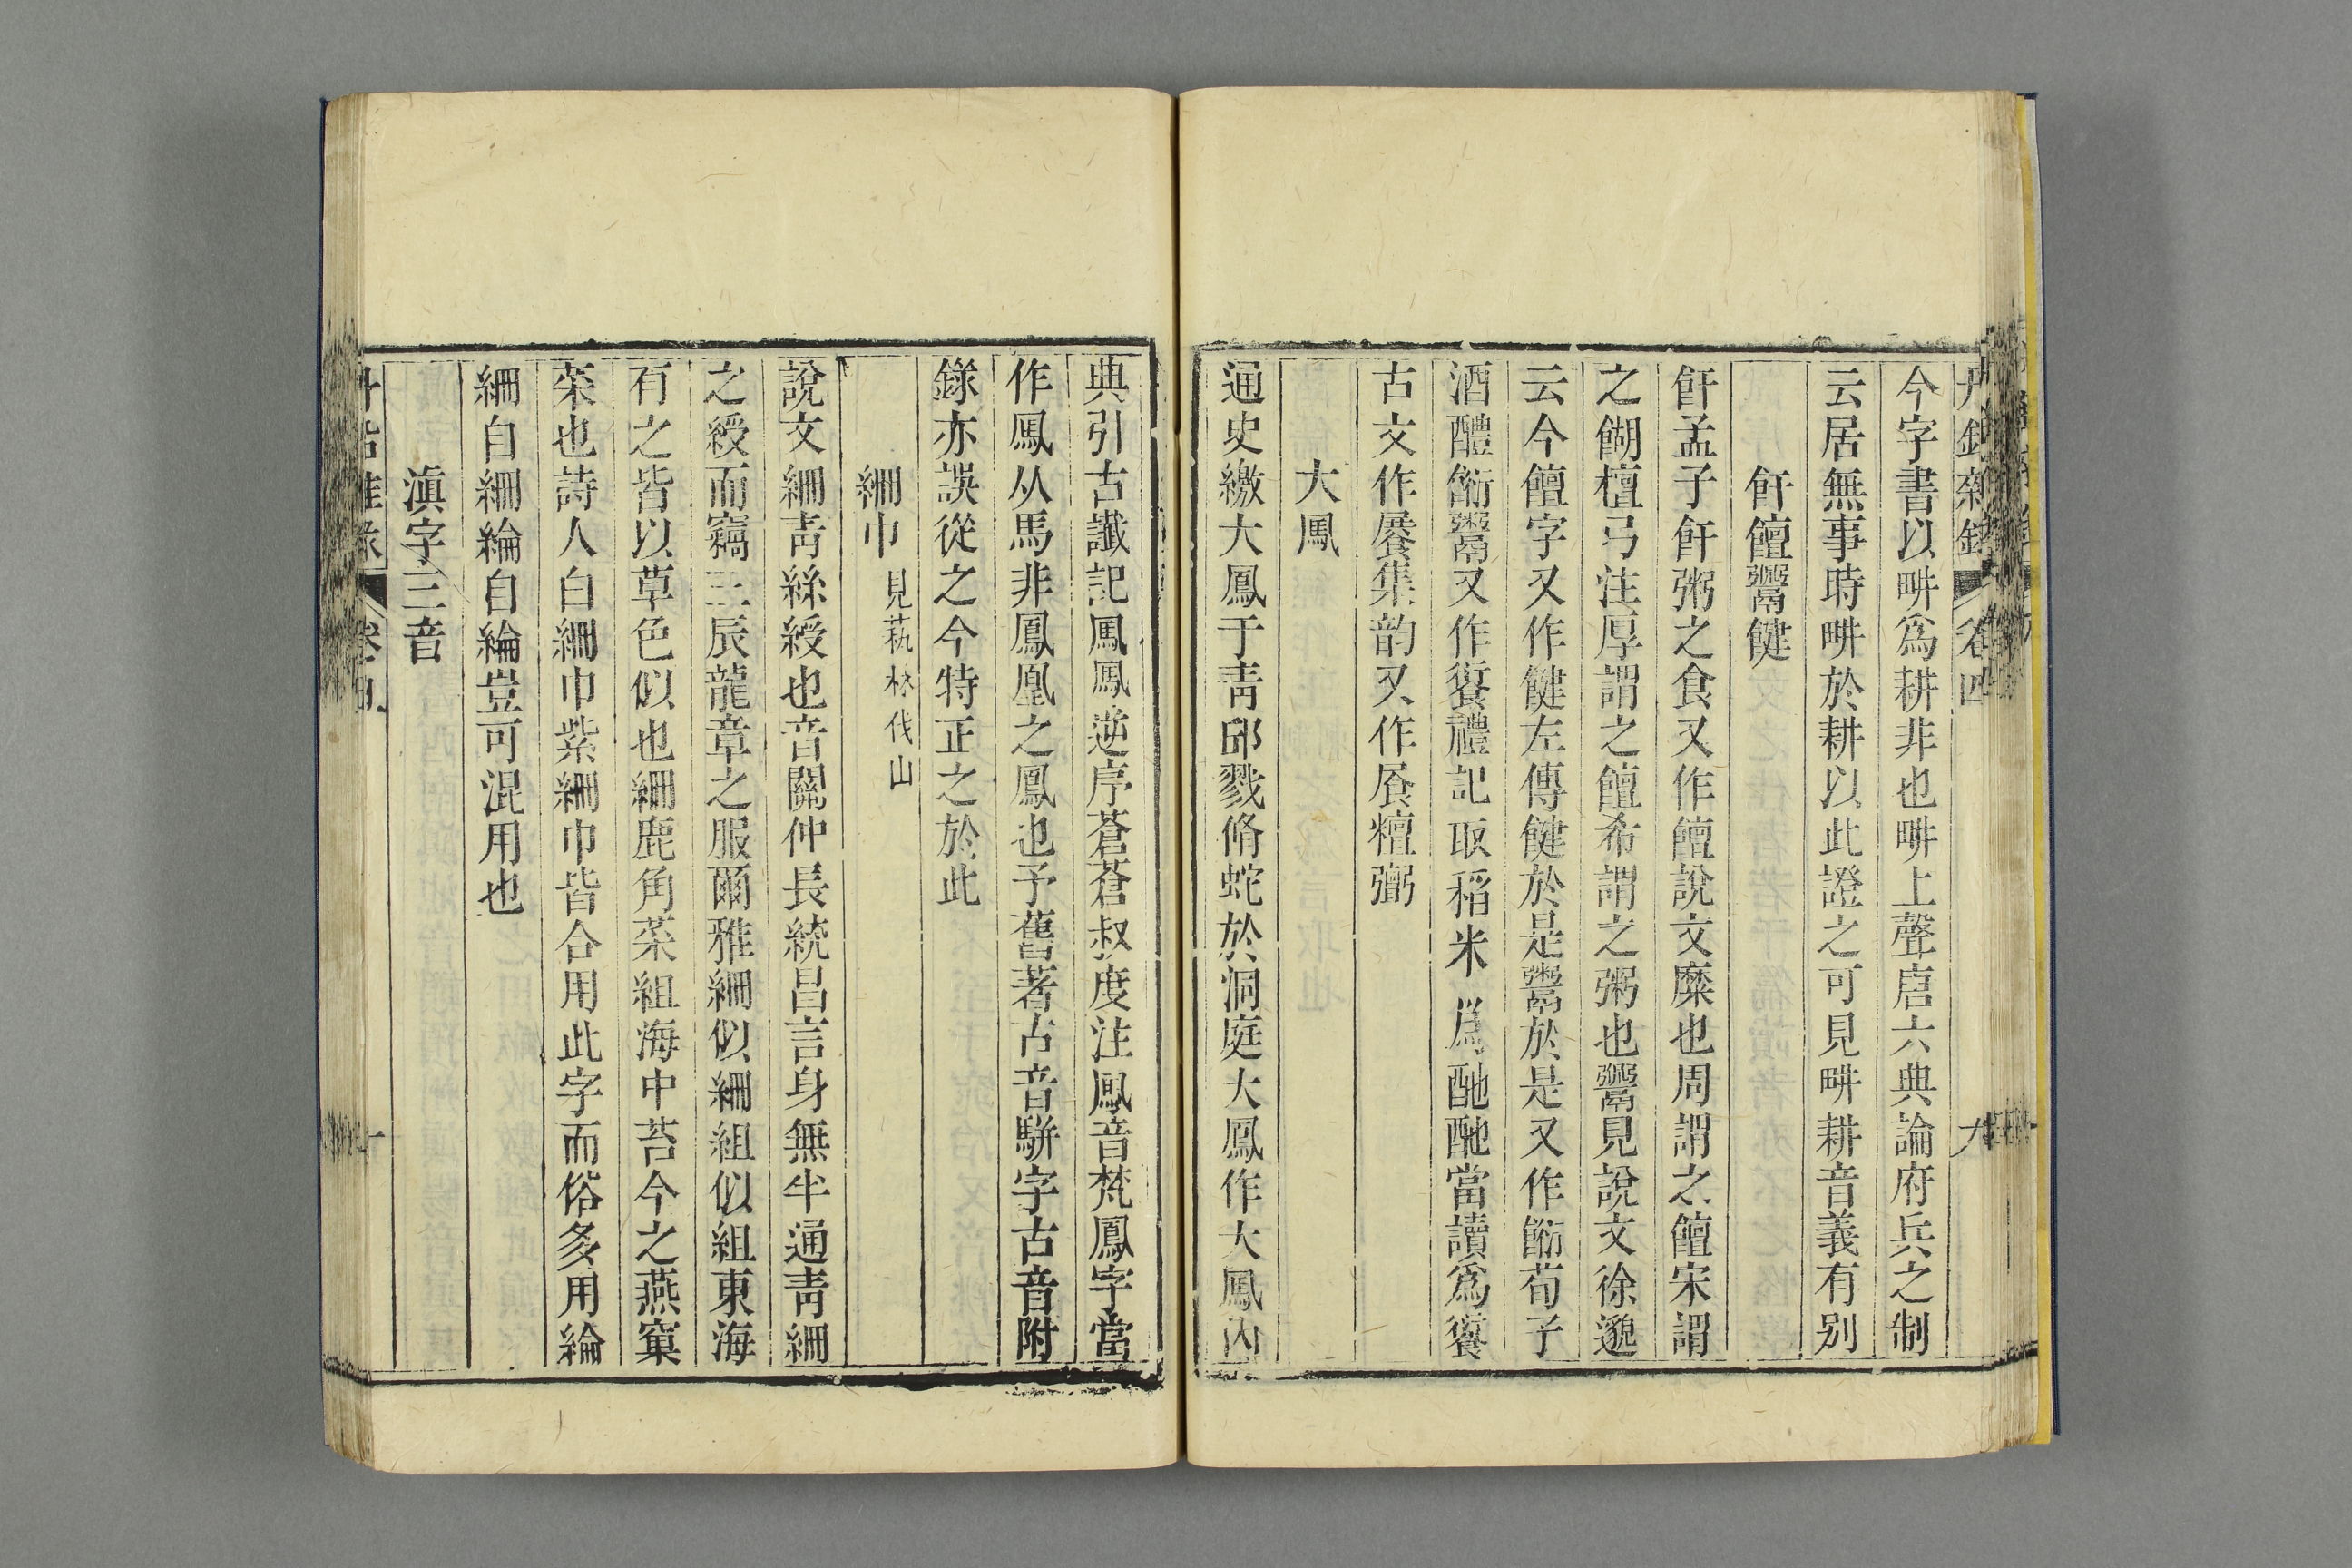 丹鉛雜錄 卷四 九
今字書以畊爲耕非也畊上聲唐六典論府兵之制
云居無事時畊於耕以此證之可見畊耕音義有别
飦饘鬻饘
飦孟子飦粥之食又作饘說文糜也周謂之饘宋謂
之餬檀弓注厚謂之饘希謂之粥也鬻見說文徐邈
云今饘字又作䭈左傳䭈於是鬻於是又作䬤荀子
酒醴䬤鬻又作餰禮記取稻米爲酏酏當讀爲餰
古文作㞡集韵又作㞡糎弻
大鳳
通史繳大鳳于靑邱戮脩蛇於洞庭大鳳作大鳳內
典引古讖記鳳鳳逆序蒼蒼叔度注鳳音梵鳳字當
作鳳从馬非鳳凰之鳳也予舊著古音駢字古音附
錄亦誤從之今特正之於此
綸巾 見萟林伐山
說文綸靑絲綬也音關仲長統昌言身無半通靑綸
之綬而竊三辰龍章之服爾雅綸似綸組似組東海
有之皆以草色似也綸鹿角菜組海中苔今之燕窠
菜也詩人白綸巾紫綸巾皆合用此字而俗多用綸
綸自綸綸自綸豈可混用也
滇字三音